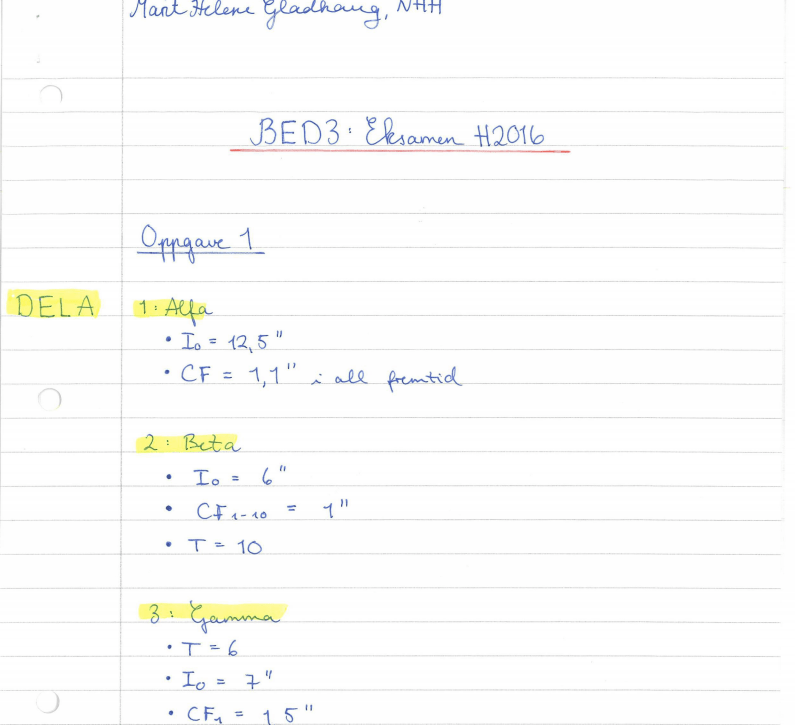 Marit Helene Gladhaug, NHH
BED3: Eksamen H2016
Oppgave 1
DEL A
1: Alfa
• I₀ = 12,5"
• CF = 1,1" i all fremtid
2: Beta
• I₀ = 6"
• CF₁₋₁₀ = 1"
• T = 10
3: Gamma
• T = 6
• I₀ = 7"
• CF₁ = 1,5"